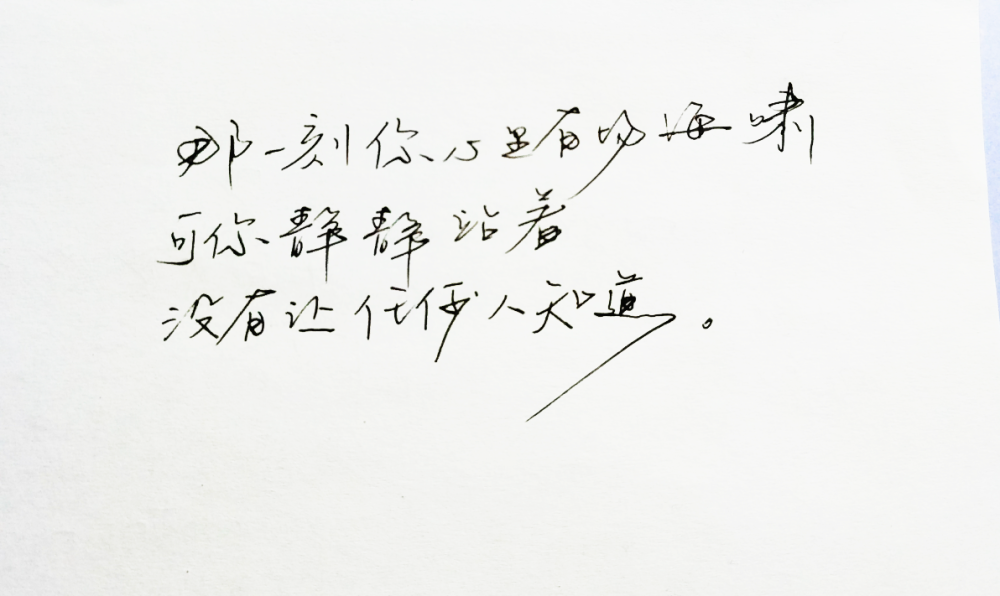 那一刻你心里有场海啸
可你静静站着
没有让任何人知道。